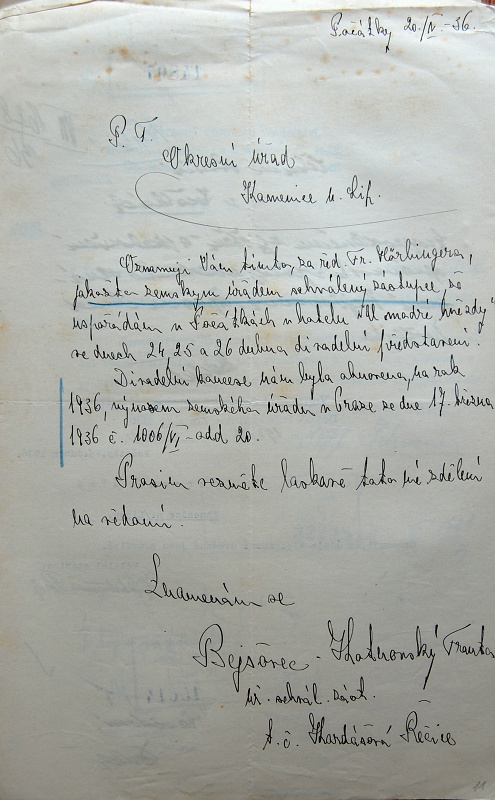 Počátky 20./IV.-36.
P. T.
Okresní úřad
Kamenice n. Lip.
Oznamuji Vám tímto, za řed. Fr. Hörbingera,
jakožto zemským úřadem schválený zástupce, že
uspořádám v Počátkách v hotelu "U modré hvězdy"
ve dnech 24, 25 a 26 dubna divadelní představení.
Divadelní koncese nám byla obnovena, na rok
1936, výnosem zemského úřadu v Praze ze dne 17. března
1936 č. 1006/VI.-odd 20.
Prosím vezměte laskavě toto mé sdělení
na vědomí.
Znamenám se
Bejšovec
Franta
úř. schvál. zást.
t. č. Kardášova Řečice
11